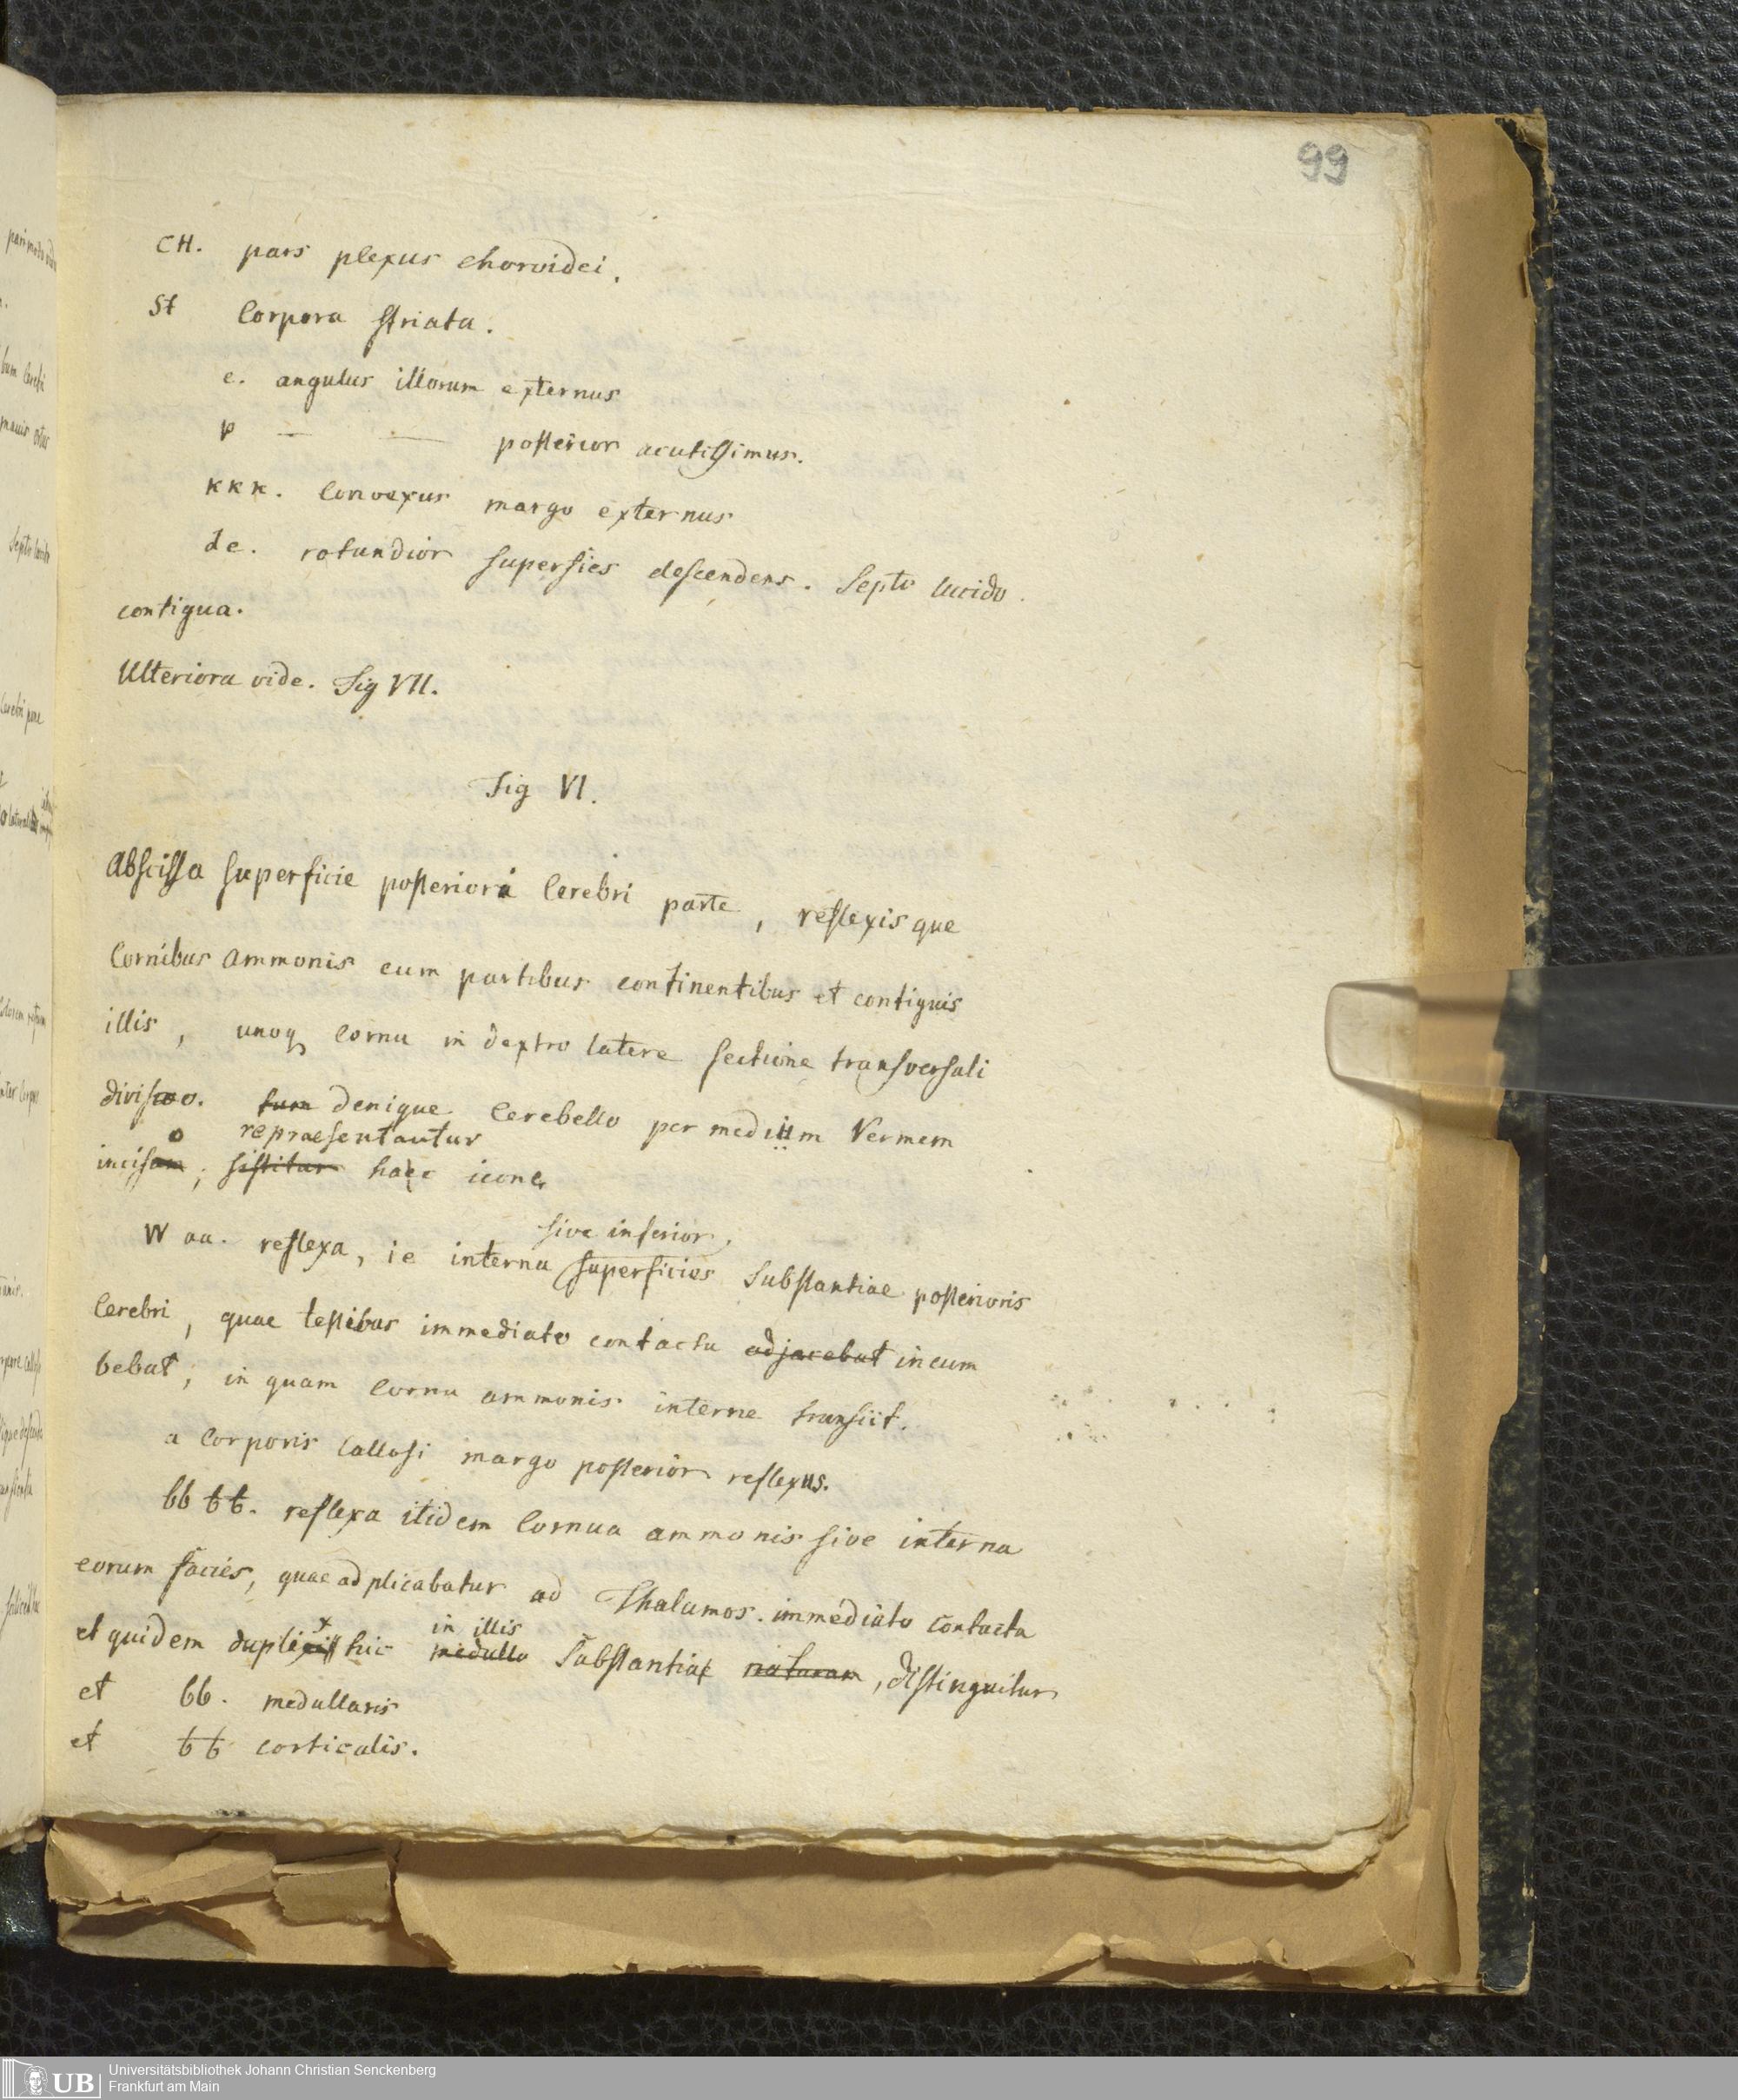 99
CH. pars plexus choroidei.
St Corpora striata.
e. angulus illorum externus
p — — posterior acutissimus.
KKK. Convexus margo externus
de. rotundior superfies descendens. Septo lucido
contigua.
Ulteriora vide. Fig VII.
Fig VI.
Abscissa superficie posteriora Cerebri parte, reflexisque
Cornibus Ammonis cum partibus continentibus et contiguis
illis, unoq cornu in dextro latere sectione transversali
diviso. tum denique Cerebello per medium Vermem
o repraesentantur
incisam; sistitur haec icone
sive inferior,
W aa. reflexa, ie interna superficies substantiae posterioris
Cerebri, quae testibus immediato contactu adjacebat incum
bebat; in quam Cornu ammonis interne transiit.
a Corporis Callosi margo posterior reflexus.
bb ƀƀ. reflexa itidem Cornua ammonis sive interna
eorum facies, quae adplicabatur ad Thalamos immediato contactu
x in illis
et quidem duplex hic medulla Substantia naturam, distinguitur
et bb. medullaris
et ƀƀ corticalis.
UB Universitätsbibliothek Johann Christian Senckenberg
Frankfurt am Main